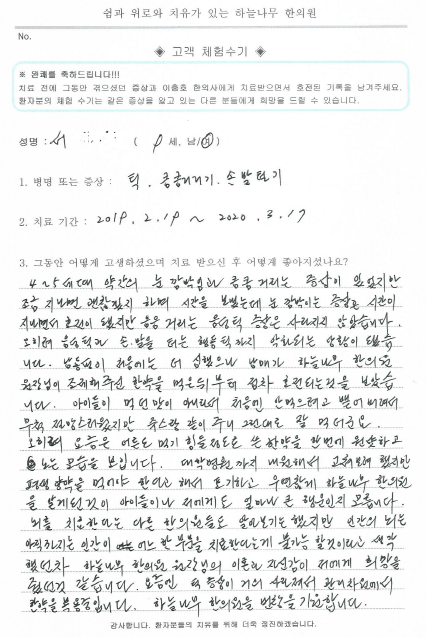 쉼과 위로와 치유가 있는 하늘나무 한의원
No.
◈ 고객 체험수기 ◈
※ 완쾌를 축하드립니다!!!
치료 전에 그동안 겪으셨던 증상과 이충호 한의사에게 치료받으면서 호전된 기록을 남겨주세요.
환자분의 체험 수기는 같은 증상을 앓고 있는 다른 분들에게 희망을 드릴 수 있습니다.
성명 : 서 ( 9 세, 남/여)
1. 병명 또는 증상 : 턱, 킁킁거리기, 손발 털기
2. 치료 기간 : 2019. 2. 19 ~ 2020. 3. 17
3. 그동안 어떻게 고생하셨으며 치료 받으신 후 어떻게 좋아지셨나요?
4~5세 때 약간의 눈 깜박임과 킁킁 거리는 증상이 있었지만
조금 지나면 괜찮겠지 하며 시간을 보냈는데 눈 깜박이는 증상은 시간이
지나면서 호전이 됐지만 음음 거리는 음성틱 증상은 사라지지 않았습니다.
오히려 음성틱과 손, 발을 터는 행동틱까지 악화되는 상황이 됐습
니다. 남동생이 처음에는 더 심했으나 남매가 하늘나무 한의원
원장님이 조제해 주신 한약을 먹은 뒤부터 점차 호전되는 것을 보았습
니다. 아이들이 먹던 맛이 아니라서 처음엔 안 먹으려고 뱉어내려서
무척 걱정스러웠지만 주스랑 같이 주니 그런대로 잘 먹더군요.
오히려 요즘은 어른도 먹기 힘들 정도로 쓴 한약을 한번에 원샷하고
노는 모습을 보입니다. 대학병원까지 내원해서 고려도 했지만
평생 약을 먹어야 한다고 해서 포기하고 우연찮게 하늘나무 한의원
을 알게 된 것이 아이들이나 저에게도 얼마나 큰 행운인지 모릅니다.
뇌를 치료한다는 다른 한의원들도 알아보기는 했지만 인간의 뇌는
아직까지는 인간이 어느 한 부분을 치료한다는게 불가능할 것이라고 생각
했던차 하늘나무 한의원 원장님의 이론과 자신감이 저에게 희망을
주셨던 것 같습니다. 요즘엔 턱 증상이 거의 사라져서 관리차원에서
한약을 복용중입니다. 하늘나무 한의원을 번창을 기원합니다.
감사합니다. 환자분들의 치유를 위해 더욱 정진하겠습니다.